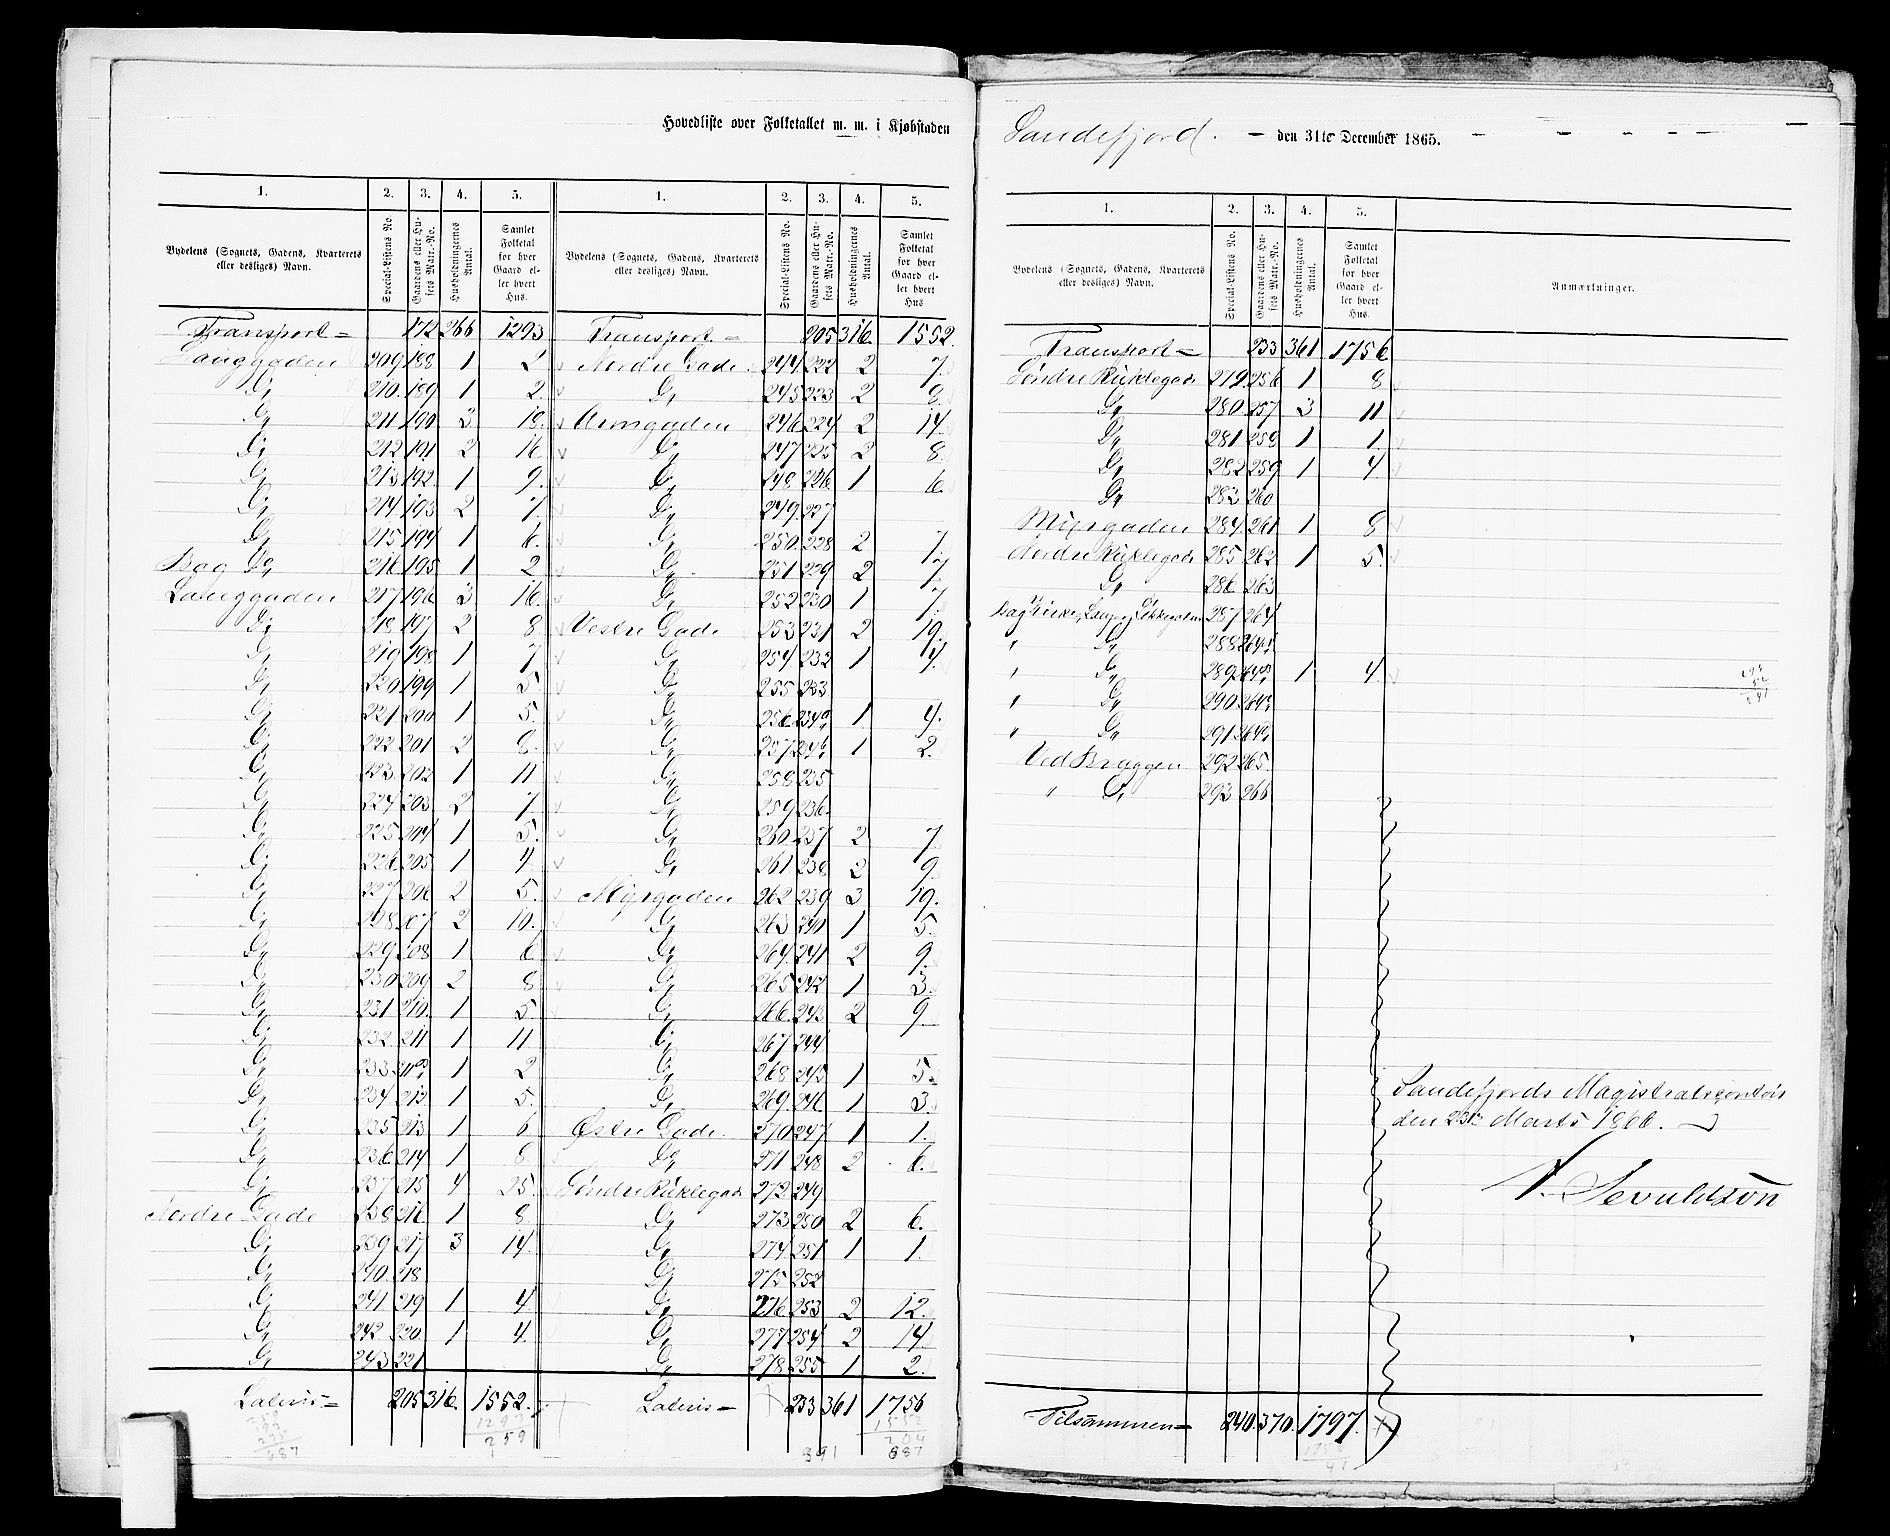 Hovedliste over Folketallet m. m. i Kjøbstaden Sandefjord. den 31te December 1865.
1. 2. 3. 4. 5. 1. 2. 3. 4. 5.
Bydelens (Sognets, Gadens, Kvarterets eller desliges) Navn. Special-Listens No. Gaardens eller Husets Matr.-No. Husholdningernes Antal. Samlet Folketal for hver Gaard eller hvert Hus.
Bydelens (Sognets, Gadens, Kvarterets eller desliges) Navn. Special-Listens No. Gaardens eller Husets Matr.-No. Husholdningernes Antal. Samlet Folketal for hver Gaard eller hvert Hus
Transport = 172 266 1293 Transport = 205 316. 1552.
Langgaden 209 188 1 2 Nordre Gade 244 222 2 7.
Do 210. 189 1 2. Do 245 223 2 8.
Do 211 190 3 18. 246 224 2 14.
Do 212 191 2 16 Do 247 225 2 8.
Do 213 192. 1 9. Do 248 226 1 6.
Do 214 193 2 7 Do 249. 227
Do 215 194 1 6. Do 250. 228 2 7.
Bag Do 216 195 1 2 Do 251 229 2 7.
Langgaden 217 196 3 16. Do 252 230 1 7.
Do 218 197 2 8 Vestre Gade 253 231 2 19.
Do 219 198 1 7 Do 254 232 1 4.
Do 220 199 1 5. Do 255 233
Do 221 200 1 5. Do 256 234a 1 4.
Do 222 201 2 8. Do 257 234b 1 2.
Do 223. 202 1 11 Do 258 235
Do 224 203 2 7. Do 259 236.
Do 225 204 1 5. Do 260. 237 2 7.
Do 226. 205 1 4. Do 261. 238 2 9.
Do 227 206 2 5. Myrgaden 262 239 3 19.
Do 228 207 2 10. Do 263 240 1 5.
Do 229 208 1 6 Do 264 241 2 9.
Do 230 209 2 8 Do 265 242 1 3.
Do 231 210. 1 5 Do 266. 243 2 9
Do 232. 211 1 11 Do 267 244
Do 233 1 2 Do 268 245 1 5.
Do 234 212. 1 5 Do 269. 246 1 3.
Do 235 213 1 6 Østre Gade. 270 247 1 1.
Do 236 214 1 8. Do 271 248 2 6.
Do 237 215 4 25. Søndre Ruklegade 272 249
Nordre Gade 238 216 1 8 Do 273 250 2 6.
Do 239 217 3 14. Do 274. 251 1 1.
Do 240. 218 Do 275 252
Do 241 219 1 4 Do 276 253 2 12.
Do 242 220. 1 4. Do 277 254 2 14
Do 243 221 Do 278 255 1 2.
Lateris = 205 316. 1552. Lateris = 233 361 1756
1293
259
1552
204
687
687
891
1. 2. 3. 4. 5.
Bydelens (Sognets, Gadens, Kvarterets eller desliges) Navn. Special-Listens No. Gaardens eller Husets Matr.-No. Husholdningernes Antal. Samlet Folketal for hver Gaard eller hvert Hus. Anmærkninger.
Transport = 233 361 1756
Søndre Ruklegade 279. 256 1 8
Do 280. 257 3 11
Do 281 258 1 1.
Do 282 259 1 4.
Do 283 260
Myrgaden 284. 261 1 8
Nordre Ruklegade 285 262 1 5.
Do 286. 263
287 264
" Do 288
" Do 289 1 4
" Do 290
" Do 291
Ved Bryggen 292 265.
" Do 293 266
Sandefjords Magistratscontoir
den 23de Marts 1866.
Tilsammen = 240. 370. 1797.
41